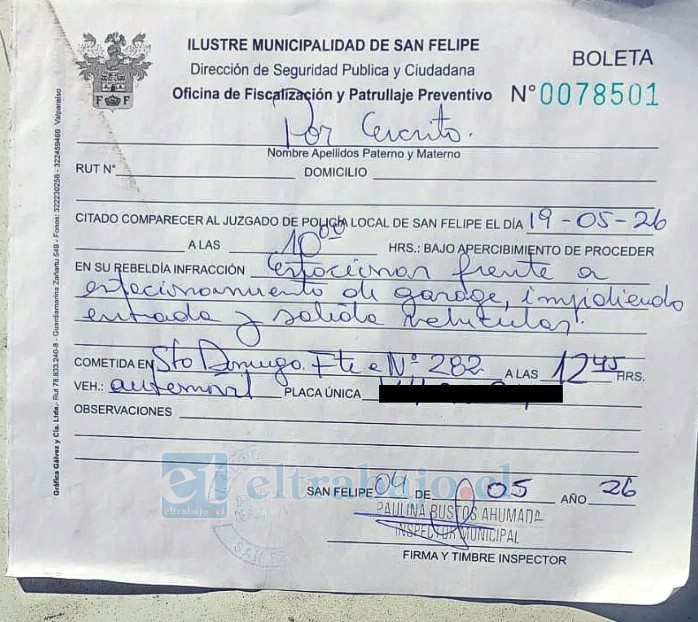 ILUSTRE MUNICIPALIDAD DE SAN FELIPE
Dirección de Seguridad Publica y Ciudadana
Oficina de Fiscalización y Patrullaje Preventivo
BOLETA
N° 0078501
F F
Por Escrito.
Nombre Apellidos Paterno y Materno
RUT N° DOMICILIO
CITADO COMPARECER AL JUZGADO DE POLICIA LOCAL DE SAN FELIPE EL DÍA 19-05-26
A LAS 10 00 HRS.: BAJO APERCIBIMIENTO DE PROCEDER
EN SU REBELDÍA INFRACCIÓN Estacionar frente a
estacionamiento de garage, impidiendo
entrada y salida vehicular.
COMETIDA EN Sto Domingo. Fte a N° 282 A LAS 12 45 HRS.
VEH.: automovil PLACA ÚNICA
OBSERVACIONES
SAN FELIPE 04 DE 05 AÑO 26
PAULINA BUSTOS AHUMADA
INSPECTOR MUNICIPAL
FIRMA Y TIMBRE INSPECTOR
ET
eltrabajo.cl
eltrabajo.cl
Gráfica Gálvez y Cía. Ltda.- Rut 78.833.240-8 - Guardiamarina Zañartu 549 - Fonos: 322230258 - 322459466 Valparaíso